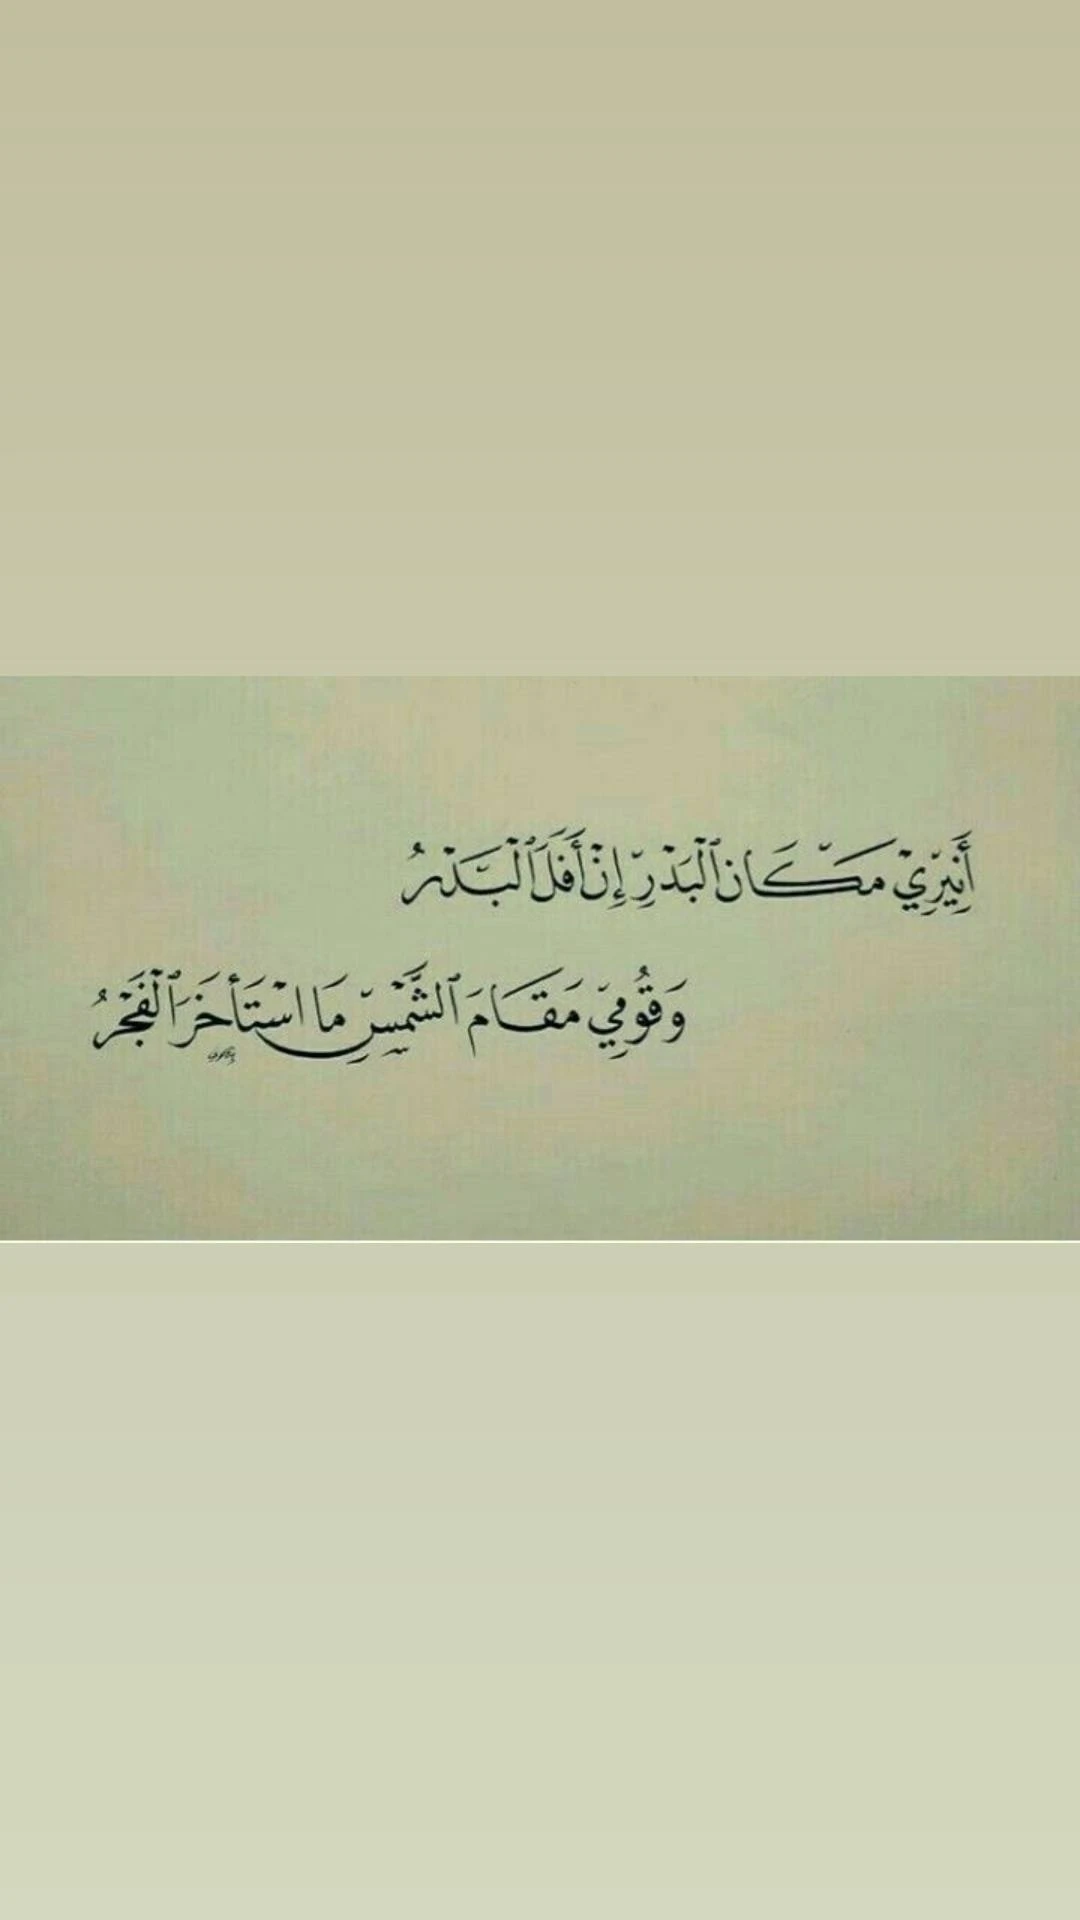 أَنِيرِيْ مَكَان ٱلْبَدْرِ إِنْ أَفَلَ ٱلْبَدْرُ
وَقُومِي مَقَامَ ٱلشَّمْسِ مَا اسْتَأخَرَ ٱلْفَجْرُ